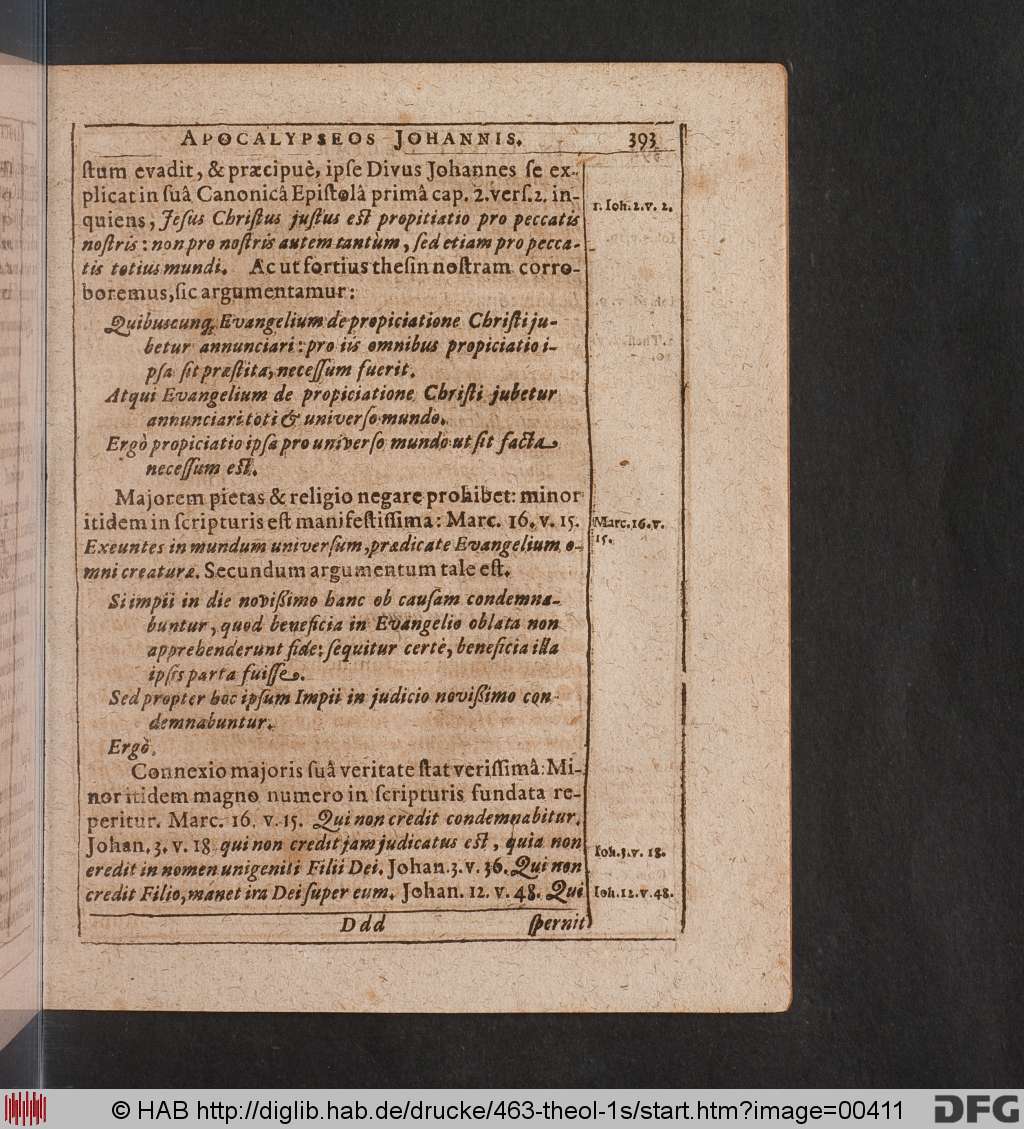 APOCALYPSEOS JOHANNIS. 393
ſtum evadit, & præcipuè, ipſe Divus Johannes ſe ex-
plicat in ſuâ Canonicâ Epiſtolâ primâ cap. 2. verſ. 2. in-
quiens, Jeſus Chriſtus juſtus eſt propitiatio pro peccatis
noſtris: non pro noſtris autem tantùm, ſed etiam pro pecca-
tis totius mundi. Ac ut fortius theſin noſtram corro-
boremus, ſic argumentamur:
1. Ioh. 2. v. 2.
Quibuscunq; Evangelium de propiciatione Chriſti ju-
betur annunciari: pro iis omnibus propiciatio i-
pſa ſit præſtita, neceſſum fuerit.
Atqui Evangelium de propiciatione Chriſti jubetur
annunciari toti & univerſo mundo.
Ergò propiciatio ipſa pro univerſo mundo ut ſit facta
neceſſum eſt.
Majorem pietas & religio negare prohibet: minor
itidem in ſcripturis eſt manifeſtiſſima: Marc. 16. v. 15.
Exeuntes in mundum univerſum, prædicate Evangelium o-
mni creaturæ. Secundum argumentum tale eſt.
Marc. 16. v.
15.
Si impii in die novißimo hanc ob cauſam condemna-
buntur, quod beneficia in Evangelio oblata non
apprehenderunt fide: ſequitur certè, beneficia illa
ipſis parta fuiſſe.
Sed propter hoc ipſum Impii in judicio novißimo con-
demnabuntur.
Ergò.
Connexio majoris ſuâ veritate ſtat veriſſimâ: Mi-
nor itidem magno numero in ſcripturis fundata re-
peritur. Marc. 16. v. 15. Qui non credit condemnabitur.
Johan. 3. v. 18 qui non credit jam judicatus eſt, quia non
credit in nomen unigeniti Filii Dei. Johan. 3. v. 36. Qui non
credit Filio, manet ira Dei ſuper eum. Johan. 12. v. 48. Qui
Ioh. 3. v. 18.
Ioh. 12. v. 48.
Ddd ſpernit
© HAB http://diglib.hab.de/drucke/463-theol-1s/start.htm?image=00411
DFG